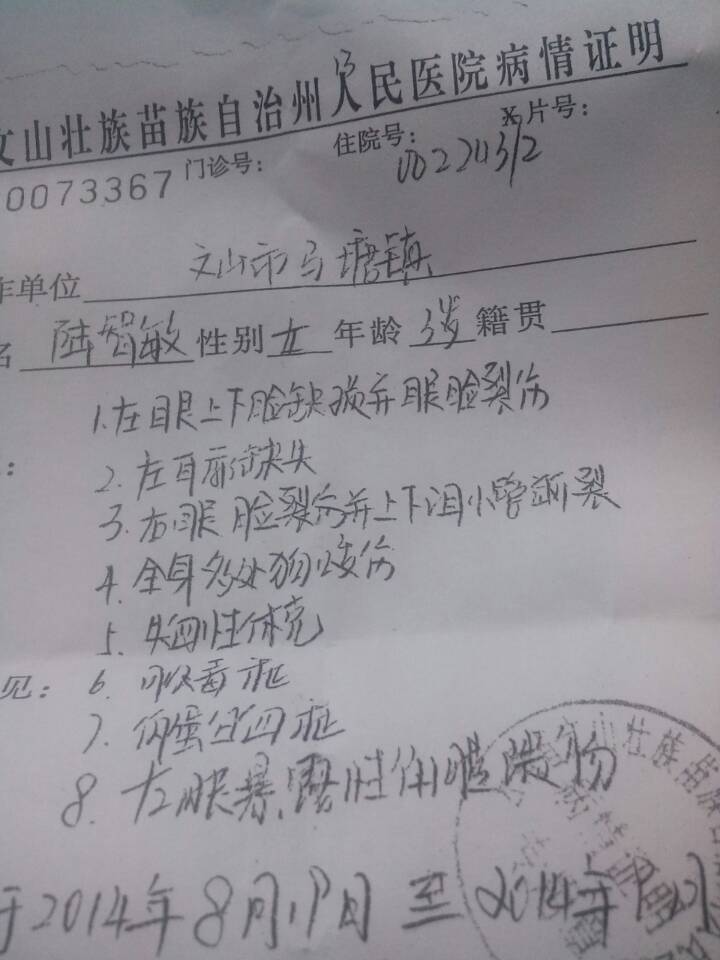 文山壮族苗族自治州人民医院病情证明
0073367 门诊号： 住院号：00224312 X片号：
作单位 文山市马塘镇
名 陆智敏 性别 女 年龄 3岁 籍贯
1. 左眼上下脸缺损并眼脸裂伤
： 2. 左耳廓缺失
3. 右眼脸裂伤并上下泪小管断裂
4. 全身多处狗咬伤
5. 失血性休克
见： 6.
7. 低蛋白血症
8. 左眼暴露性角膜溃疡
于2014年8月19日 至 2014年
山壮族苗族
病情证明